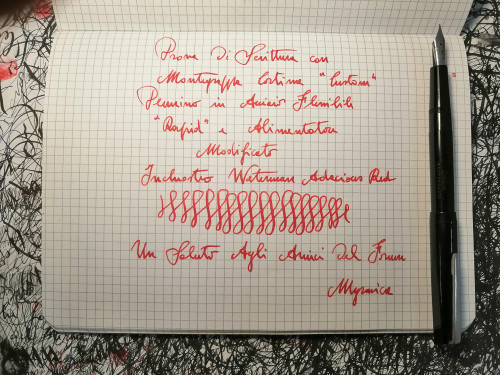 Prova di Scrittura con
Montegrappa Extra "Custom"
Pennino in Acciaio Flessibile
"Rapid" e Alimentatore
Modificato
Inchiostro Waterman Audacious Red
Un Saluto Agli Amici del Forum